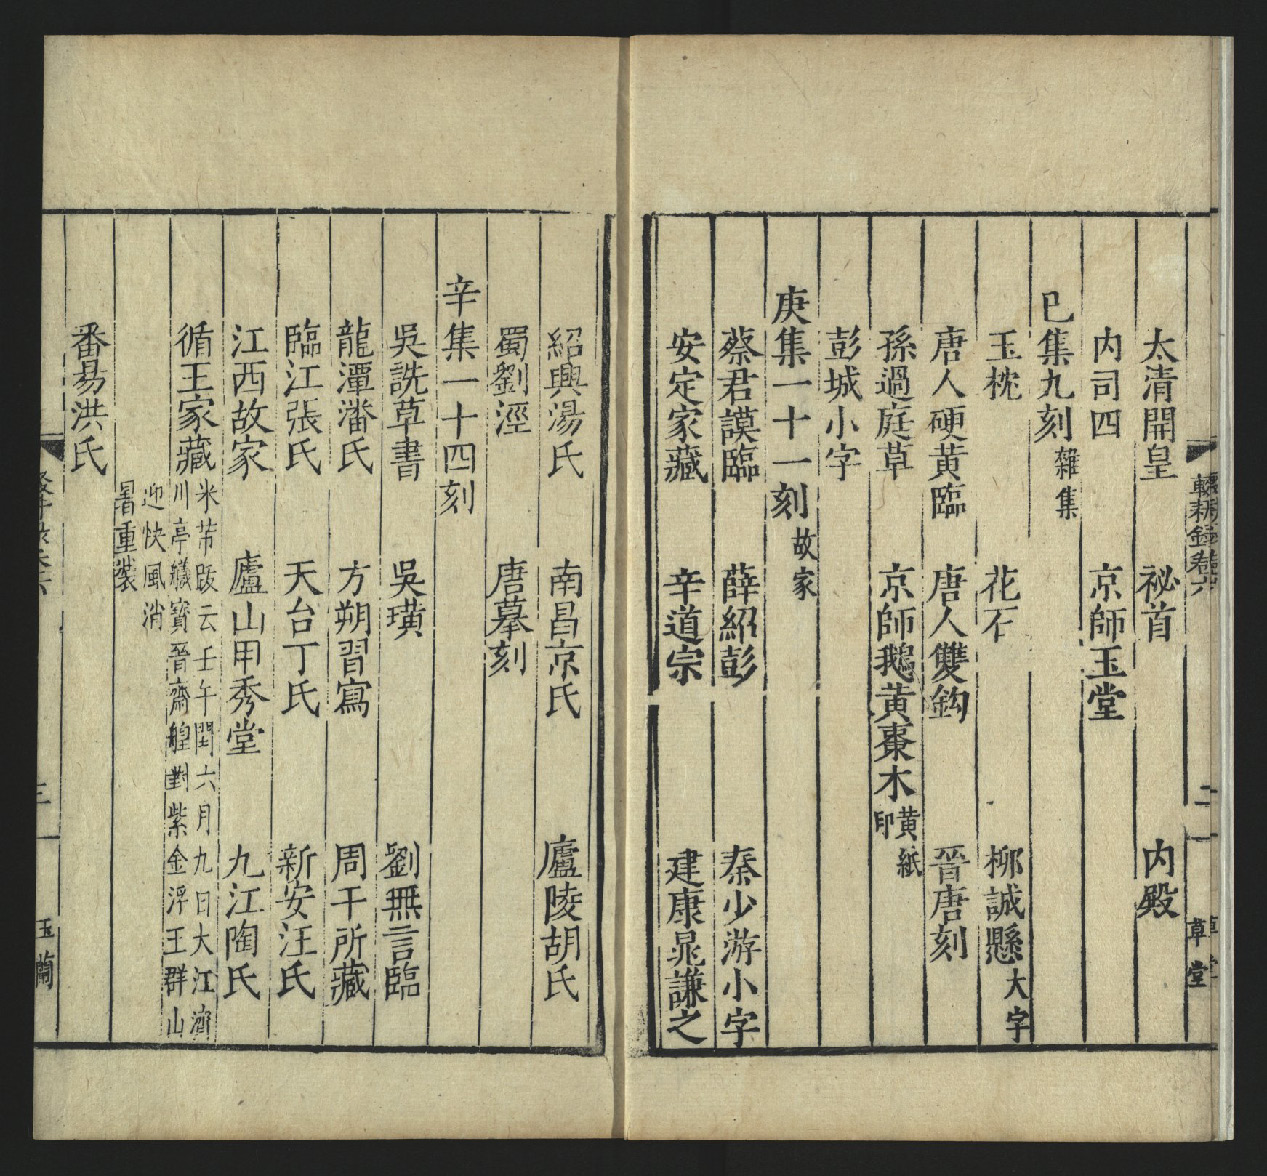 太清開皇 祕首 内殿
内司四 京師玉堂
已集九刻 雜集
玉枕 花石 柳誠懸 大字
唐人硬黄臨 唐人雙鈎 晉唐刻
孫過庭草 京師鵝黄棗木 黄紙印
彭城小字
庚集一十一刻 故家
蔡君謨臨 薛紹彭 秦少游小字
安定家藏 辛道宗 建康晁謙之
紹興湯氏 南昌京氏 廬陵胡氏
蜀劉涇 唐摹刻
辛集一十四刻
吳說草書 吳璜 劉無言臨
龍潭潘氏 方朔習寫 周干所藏
臨江張氏 天台丁氏 新安汪氏
江西故家 廬山甲秀堂 九江陶氏
循王家藏 米芾跋云壬午閏六月九日大江濟
川亭艤寶晉齋艎對紫金浮玉群山
迎快風消
暑重裝
番昜洪氏
輟耕錄卷六
二
草堂
三
玉蘭